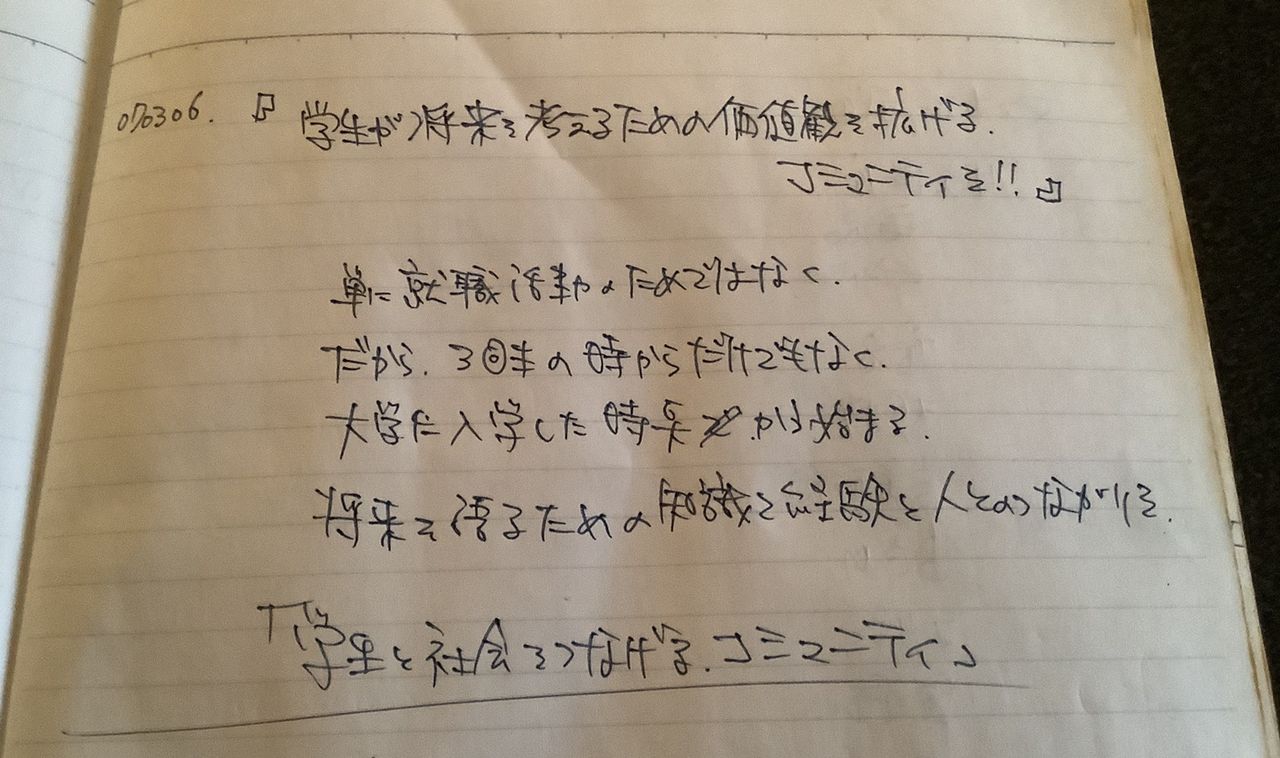 070306. 『学生が将来を考えるための価値観を拡げる.
コミュニティを!!』
単に就職活動のためではなく.
だから. 3回生の時からだけでもなく.
大学に入学した時点から始まる.
将来を語るための知識と経験と人とのつながりを.
「学生と社会をつなげる.コミュニティ」